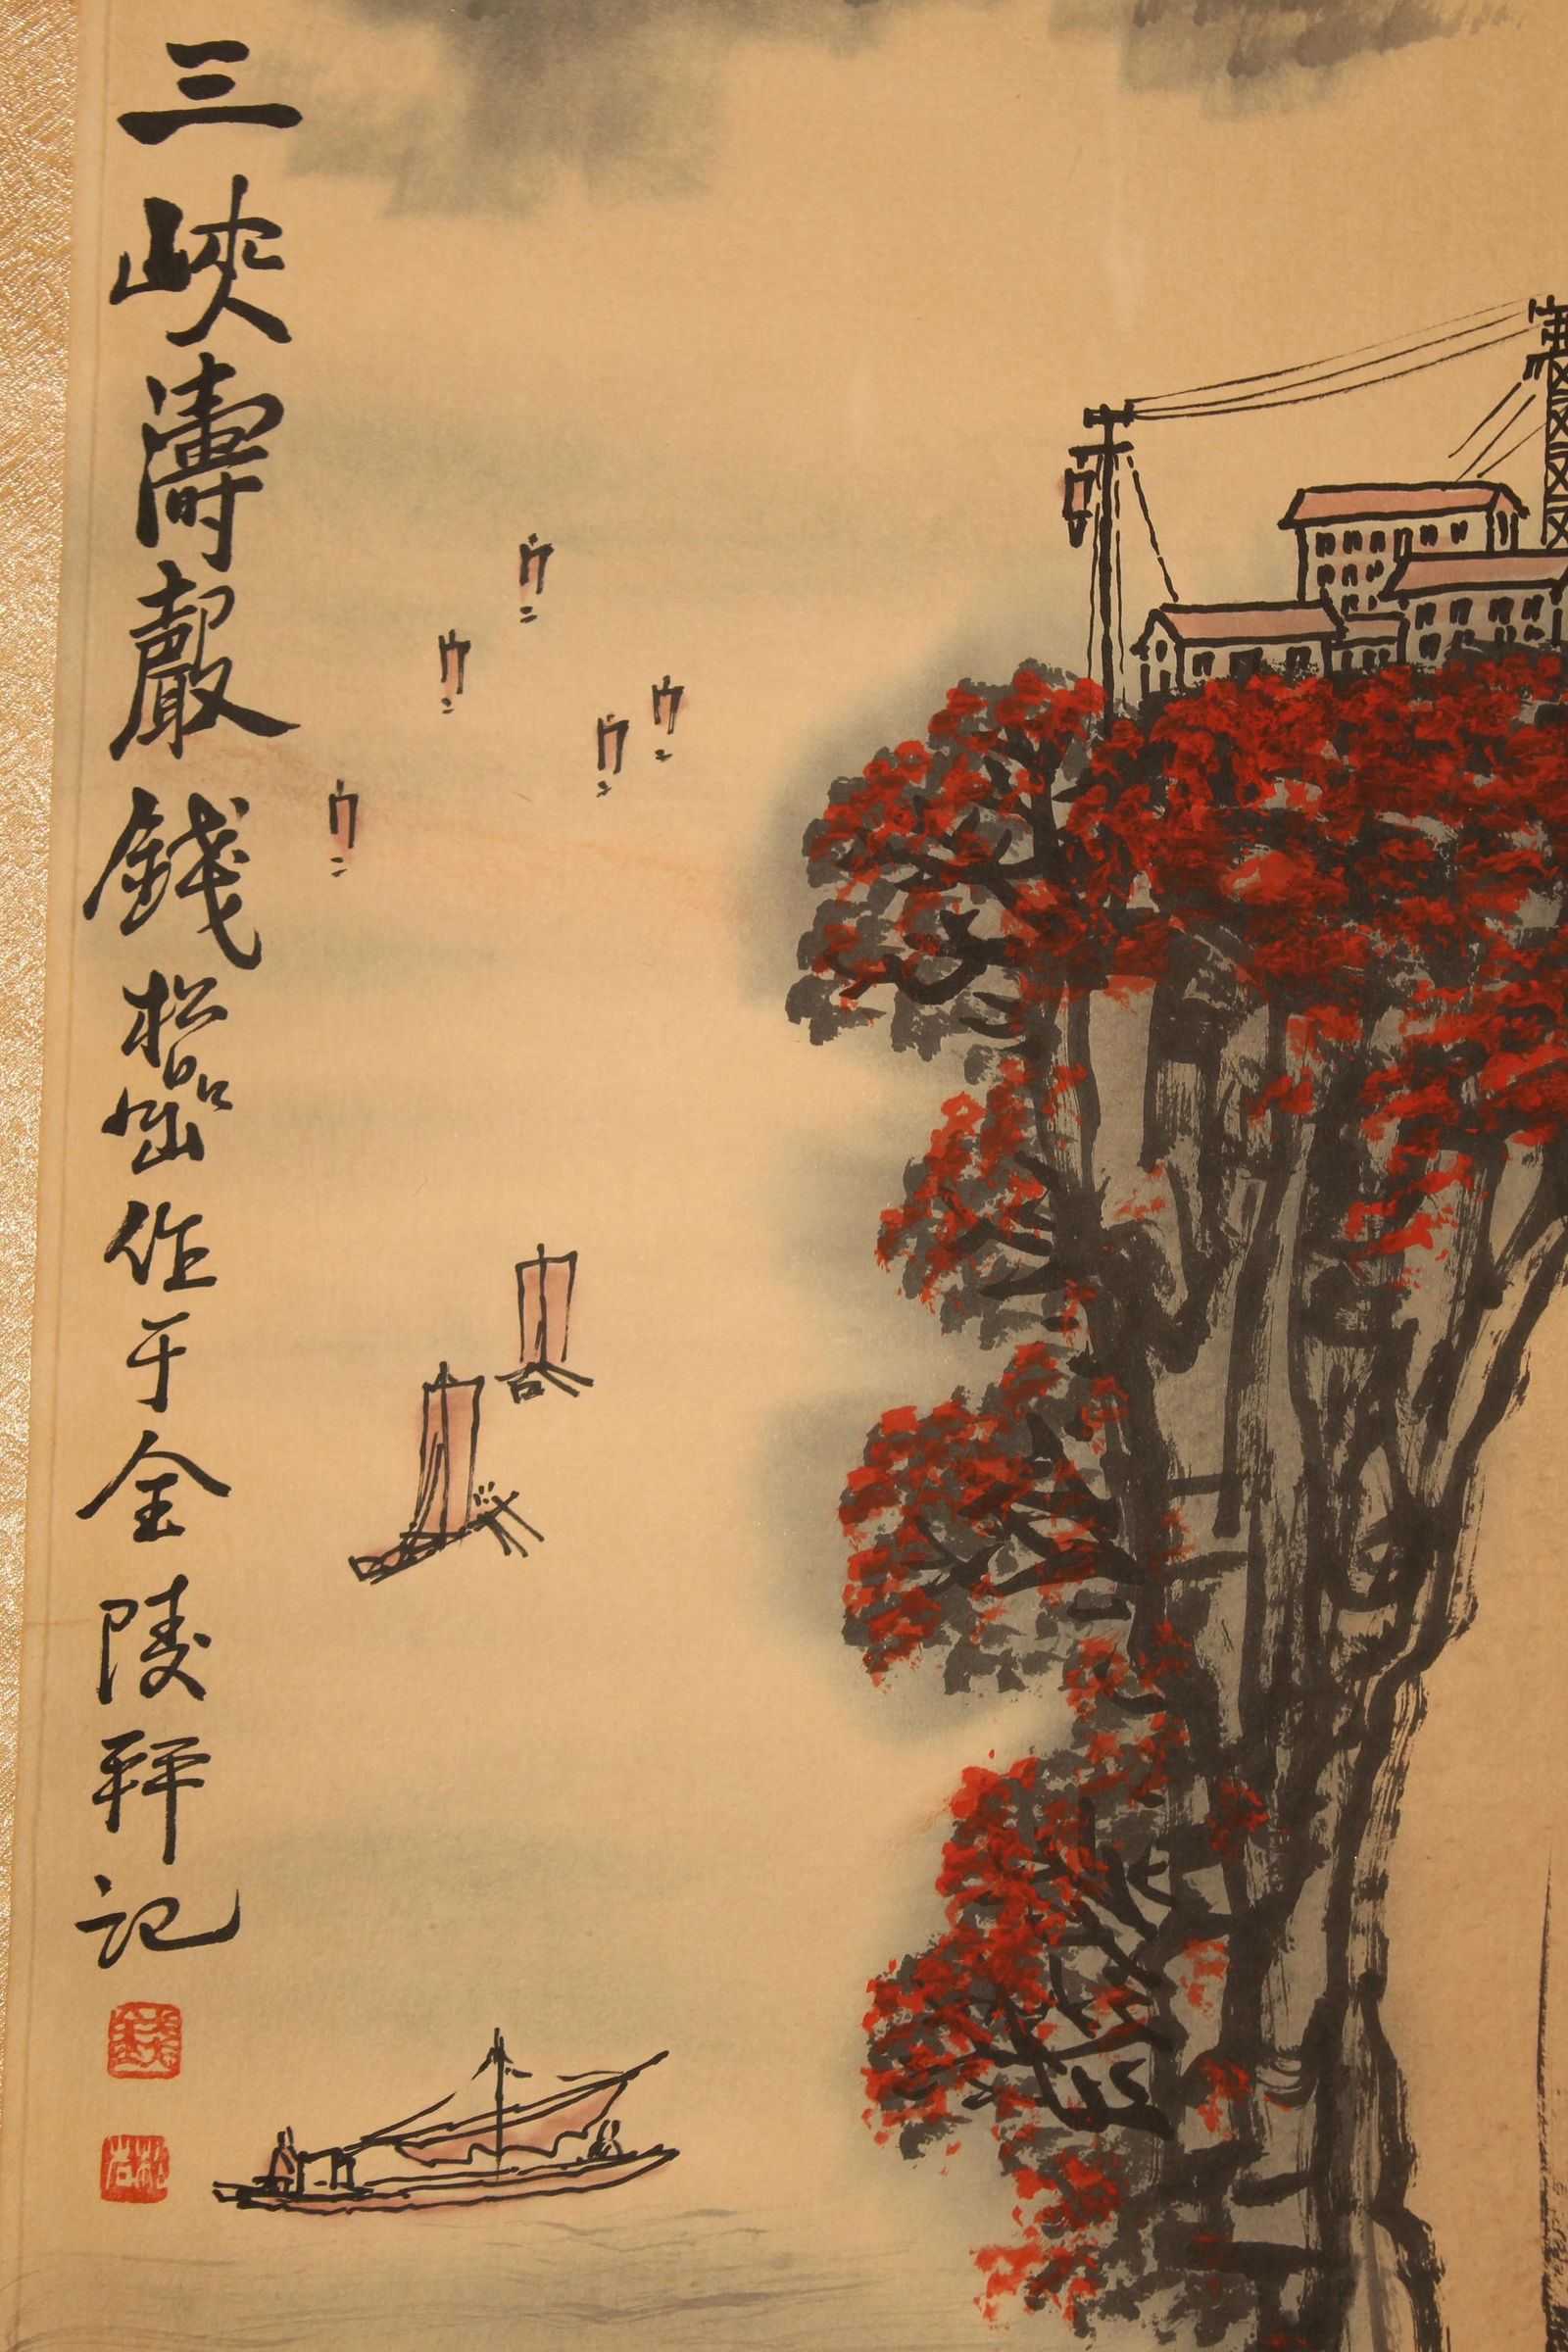 三峽濤聲錢松嵒作于金陵拜記